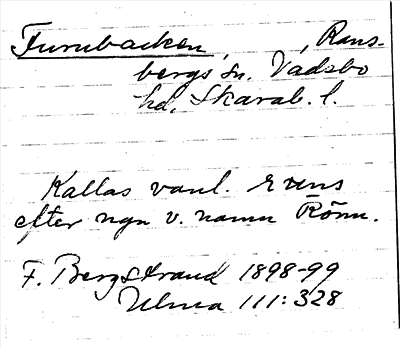 Furubacken, , Rans-
bergs sn. Vadsbo
hd, Skarab. l.
Kallas vanl. Evens
efter ngn v. namn Rönn.
F. Bergstrand 1898-99
Ulma 111:328